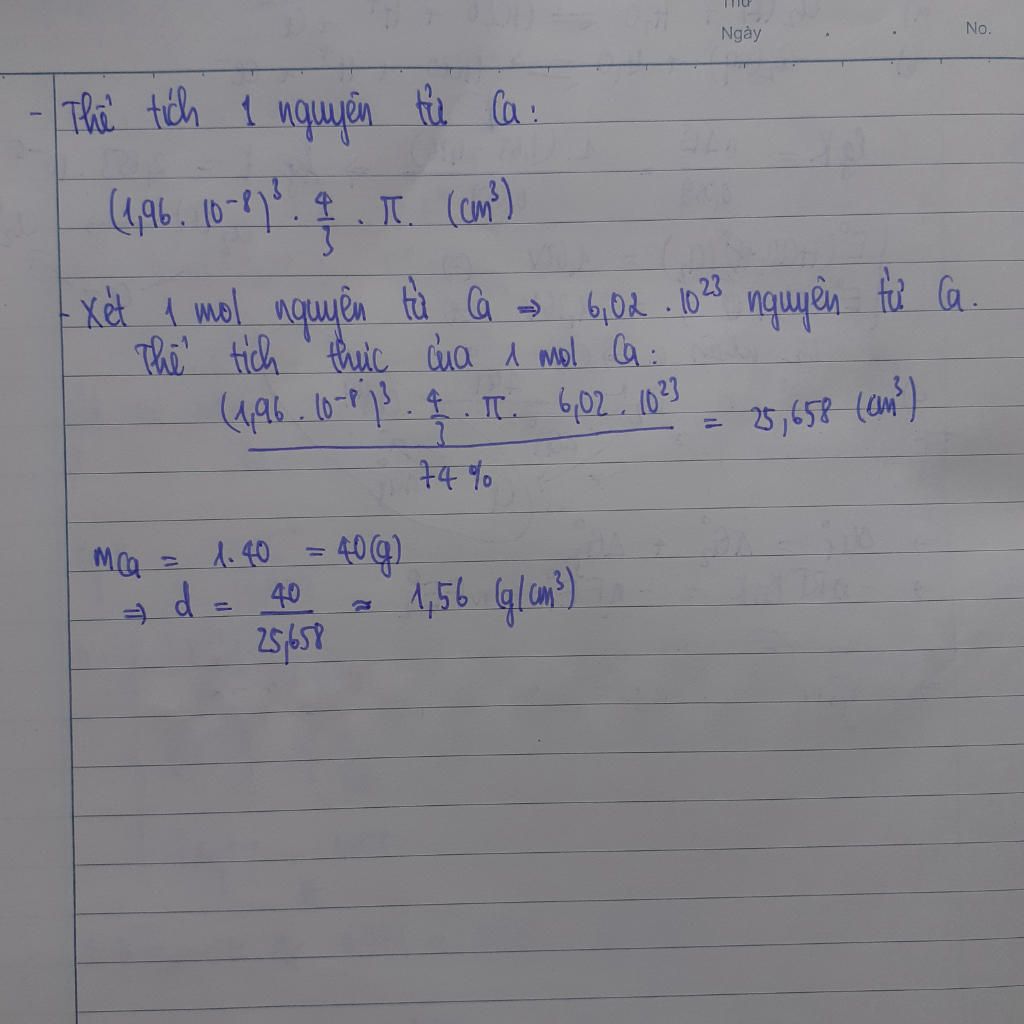 Thứ
Ngày . . No.
- Thể tích 1 nguyên tử Ca:
(1,96 . 10⁻⁸)³ . 4/3 . π. (cm³)
- Xét 1 mol nguyên tử Ca ⇒ 6,02 . 10²³ nguyên tử Ca.
Thể tích thực của 1 mol Ca:
(1,96 . 10⁻⁸)³ . 4/3 . π. 6,02 . 10²³ / 74% = 25,658 (cm³)
mCa = 1.40 = 40(g)
⇒ d = 40/25,658 ≈ 1,56 (g/cm³)